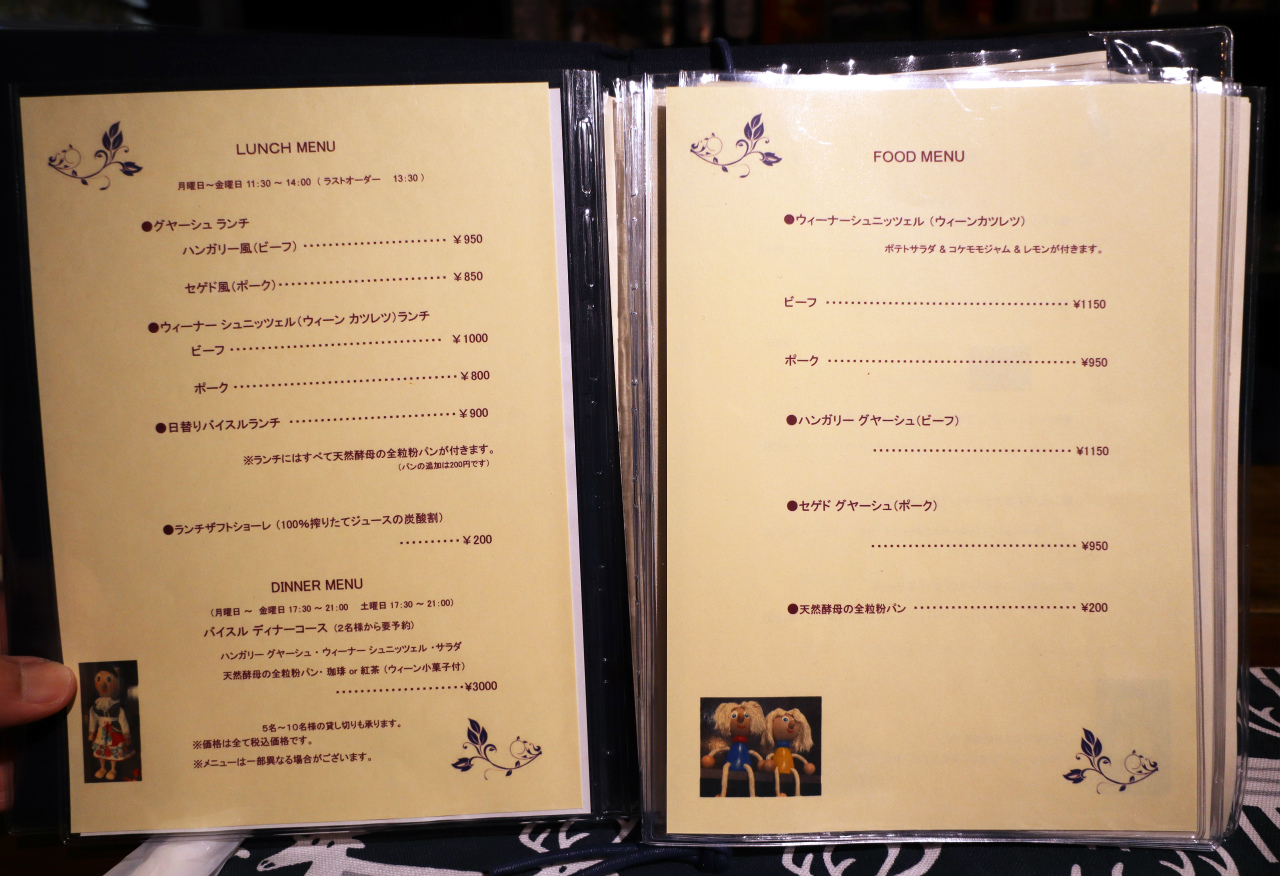 LUNCH MENU
月曜日～金曜日 11:30 ～ 14:00 （ ラストオーダー 13:30 ）
●グヤーシュ ランチ
ハンガリー風（ビーフ） ････････････････････････ ￥950
セゲド風（ポーク）････････････････････････････ ￥850
●ウィーナー シュニッツェル（ウィーン カツレツ）ランチ
ビーフ ･･････････････････････････････････ ￥1000
ポーク ････････････････････････････････････￥800
●日替りバイスルランチ ･･･････････････････････････￥900
※ランチにはすべて天然酵母の全粒粉パンが付きます。
（パンの追加は200円です）
●ランチザフトショーレ （100％搾りたてジュースの炭酸割）
･･････････￥200
DINNER MENU
（月曜日 ～ 金曜日 17:30 ～ 21:00 土曜日 17:30 ～ 21:00）
バイスル ディナーコース （2名様から要予約）
ハンガリー グヤーシュ・ウィーナー シュニッツェル ・サラダ
天然酵母の全粒粉パン・ 珈琲 or 紅茶 （ウィーン小菓子付）
･････････････････････¥3000
5名～10名様の貸し切りも承ります。
※価格は全て税込価格です。
※メニューは一部異なる場合がございます。
FOOD MENU
●ウィーナーシュニッツェル （ウィーンカツレツ）
ポテトサラダ & コケモモジャム & レモンが付きます。
ビーフ ･･･････････････････････････････････････ ¥1150
ポーク ････････････････････････････････････････ ¥950
●ハンガリー グヤーシュ（ビーフ）
･････････････････････････････････ ¥1150
●セゲド グヤーシュ（ポーク）
･････････････････････････････････ ¥950
●天然酵母の全粒粉パン ･･････････････････････････ ¥200